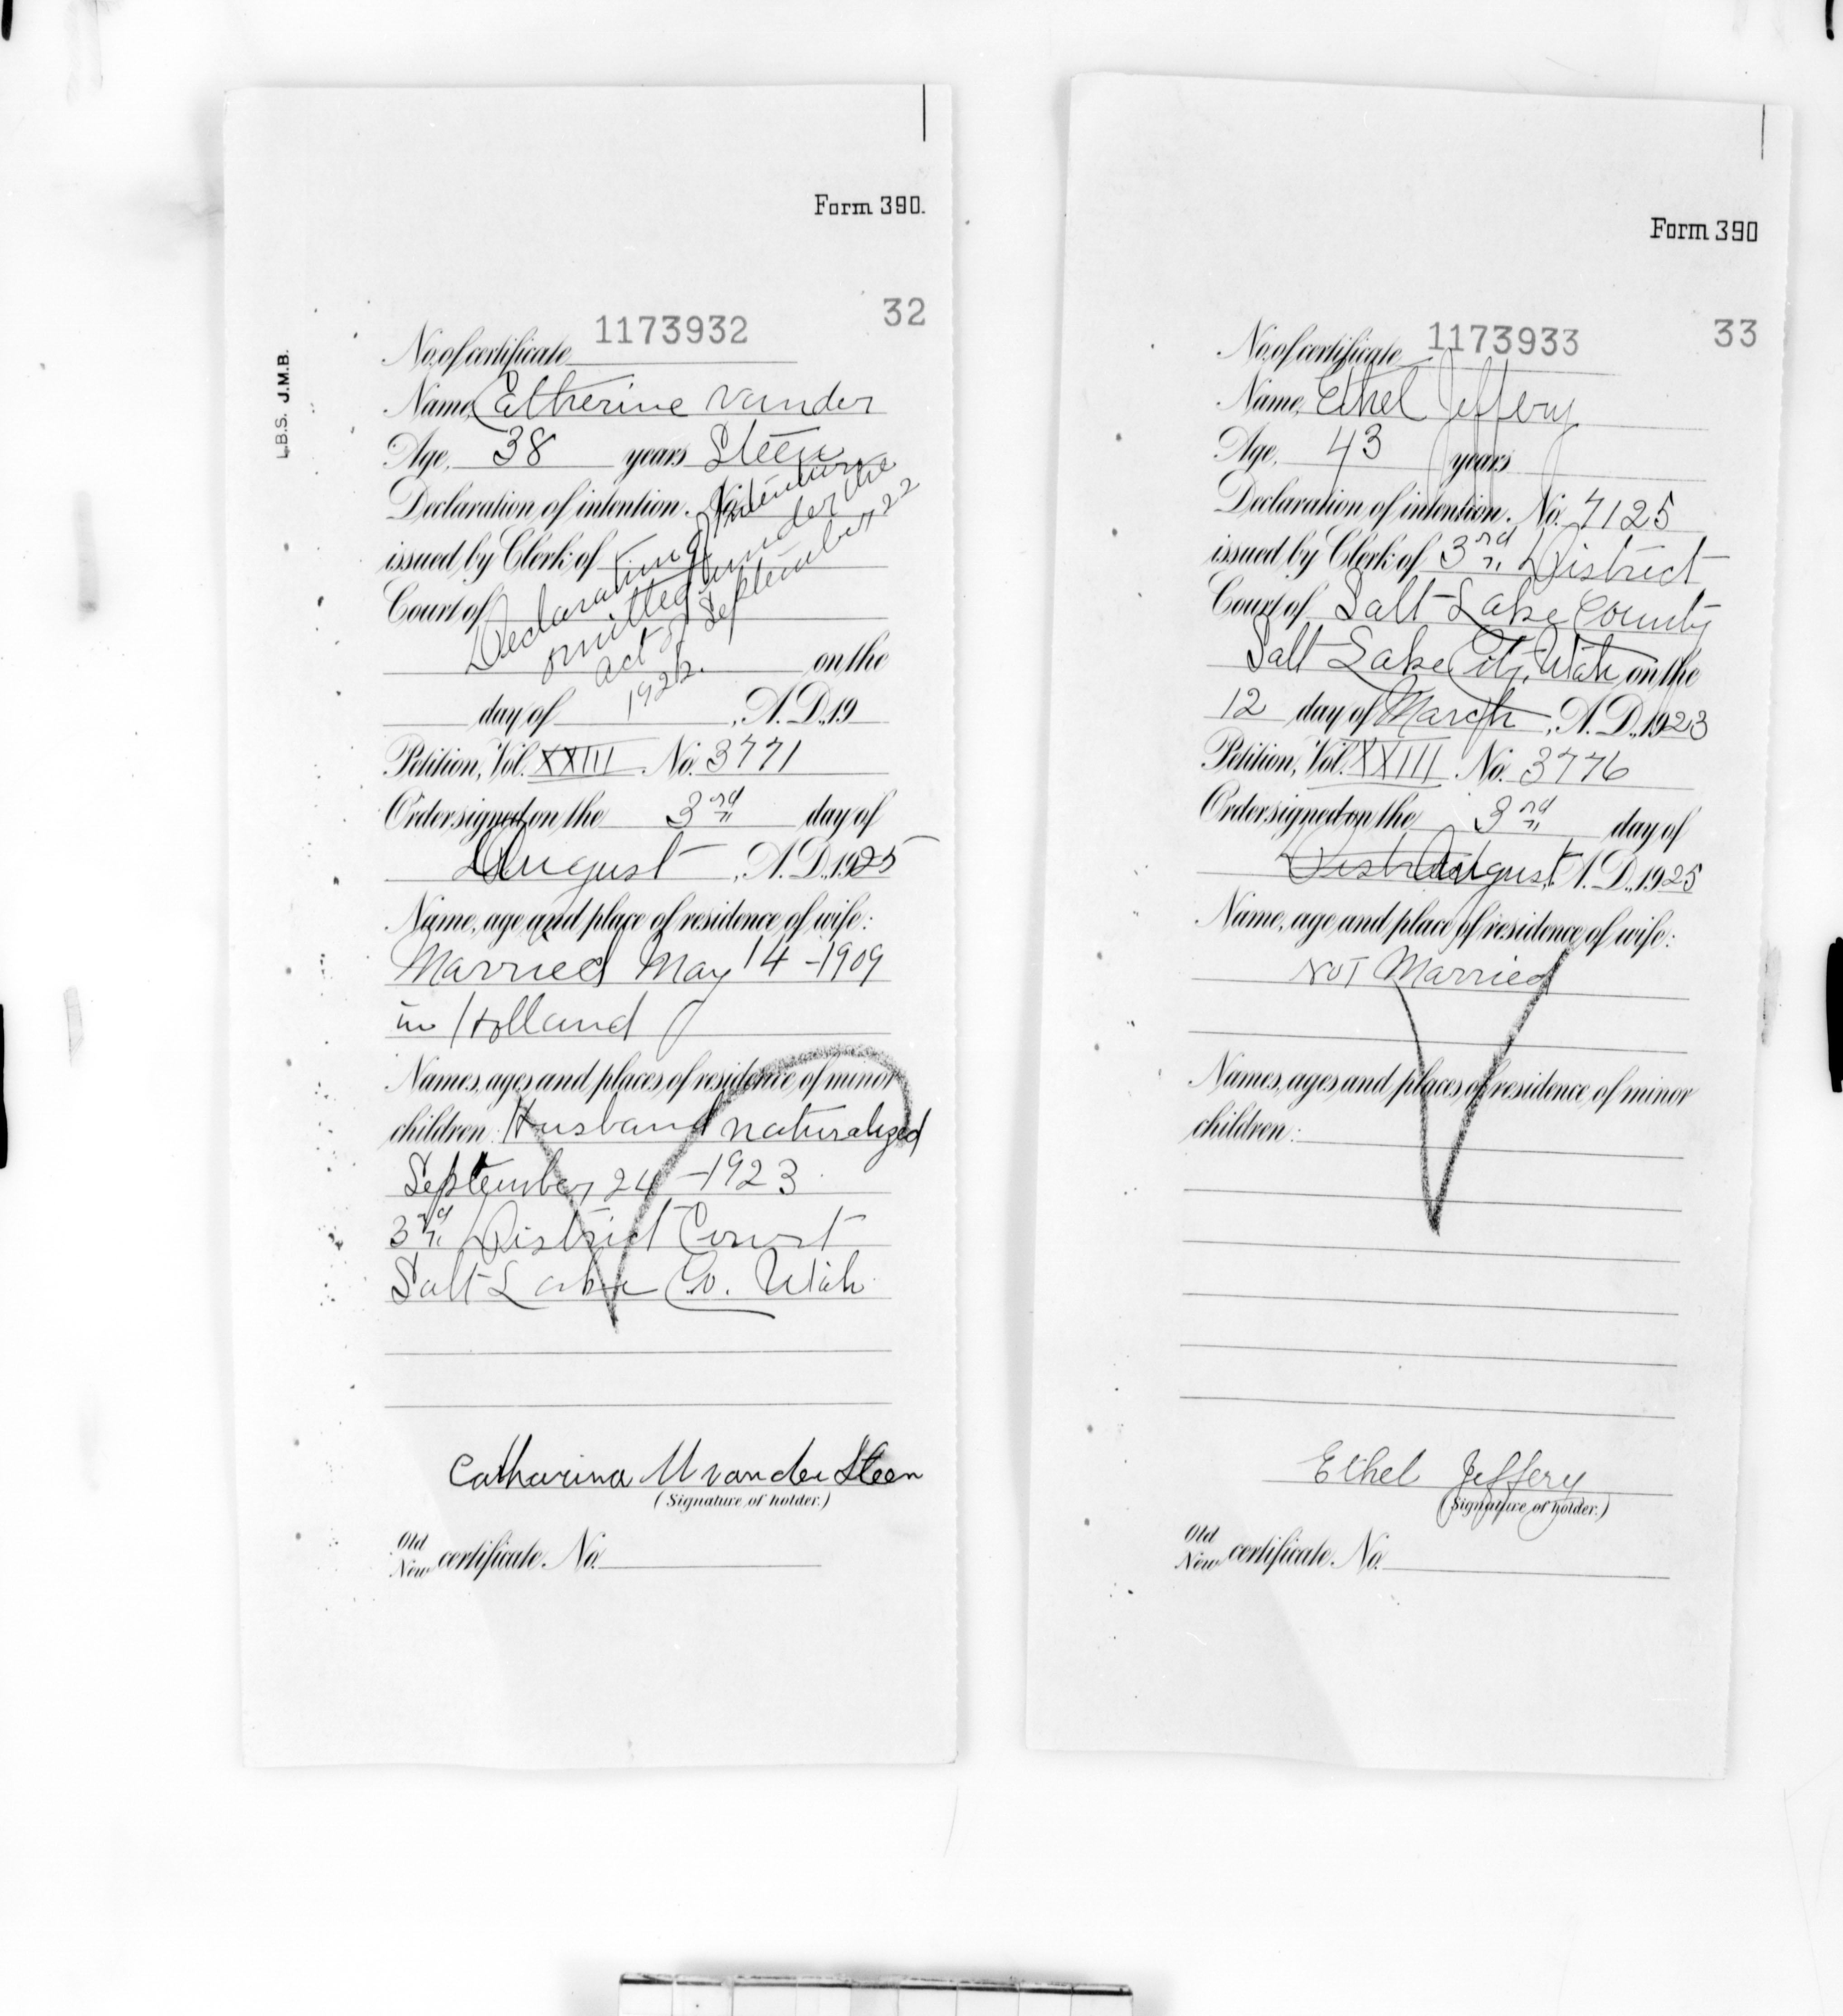 Form 390.
32
L.B.S. J.M.B.
No. of certificate 1173932
Name, Catherine vander
Age, 38 years Steen
Declaration of intention, No.
issued by Clerk of
Court of
Declaration of Intention
omitted under the
act of September 22
1922.
on the
day of , A.D. 19
Petition, Vol. XXIII No. 3771
Order signed on the 3rd day of
August , A.D. 1925
Name, age and place of residence of wife:
Married May 14 - 1909
in Holland
Names, ages and places of residence of minor
children: Husband naturalized
September 24 - 1923
3rd District Court
Salt Lake Co. Utah
Catharina M van der Steen
(Signature of holder.)
Old
New certificate No.
Form 390
33
No. of certificate 1173933
Name, Ethel Jeffery
Age, 43 years
Declaration of intention, No. 7125
issued by Clerk of 3rd District
Court of Salt Lake County
Salt Lake City, Utah on the
12 day of March , A.D. 1923
Petition, Vol. XXIII No. 3776
Order signed on the 3rd day of
August A.D. 1925
Name, age and place of residence of wife:
NOT Married
Names, ages and places of residence of minor
children:
Ethel Jeffery
(Signature of holder.)
Old
New certificate No.